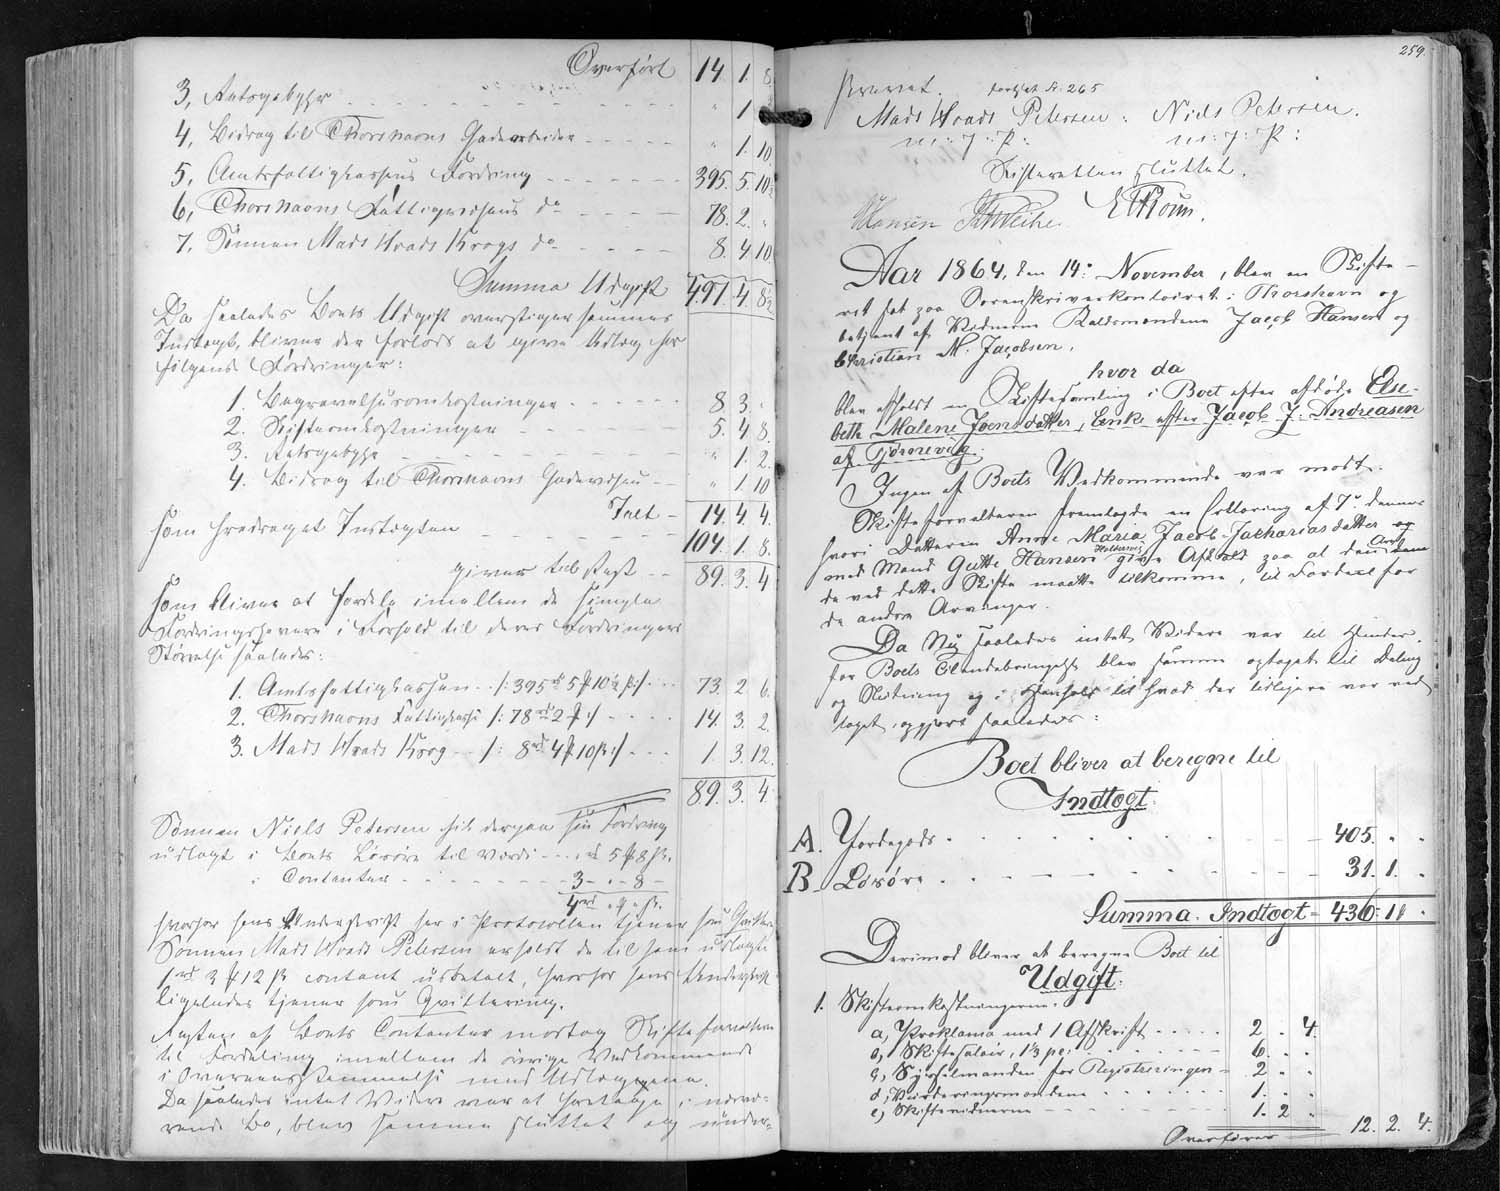 Overført 14. 1. 8.
3, Retsgebyhr " 1
4, Bidrag til Thorshavns Gadearbeider " 1. 10.
5, Amtsfattigkassens Fordring 395. 5. 10½
6, Thorshavns Fattigvæsens do 78. 2. "
7. Sönnen Mads Wrads Krogs do 8. 4. 10
Summa Udgift 497. 4. 8½
Da saaledes Boets Udgift overstiger sammes
Indtægt, bliver der forlods at gjøre Udlæg for
følgende Fordringer:
1. Begravelsesomkostninger 8. 3. "
2. Skifteomkostninger 5. 4. 8.
3. Retsgebyhr " 1. 2.
4. Bidrag til Thorshavns Gadevæsen " 1. 10
Ialt 14. 4. 4.
som fradraget Indtægten 104. 1. 8.
giver til Rest 89. 3. 4
som bliver at fordele imellem de simple
Fordringshavere i Forhold til deres Fordringers
Størrelse saaledes:
1. Amtsfattigkassen /: 395 rd 5 ₰ 10½ β :/ 73. 2. 6.
2. Thorshavns Fattigkasse /: 78 rd 2 ₰ :/ 14. 3. 2.
3. Mads Wrads Krog /: 8 rd 4 ₰ 10 β :/ 1. 3. 12.
89. 3. 4.
Sönnen Niels Petersen fik derpaa sin Fordring
udlagt i Boets Løsøre til Værdi " rd 5 ₰ 8 β.
i Contanter 3 - " - 8 -
4 rd " ₰ " β.
hvorfor hans Underskrift her i Protocollen tjener som Qvittering
Sønnen Mads Wrads Petersen erholdt de til ham udlagte
1 rd 3 ₰ 12 β contant udbetalt, hvorfor hans Underskrift
ligeledes tjener som Qvittering.
Resten af Boets Contanter modtog Skifteforvalteren
til Fordeling imellem de øvrige Vedkommende
i Overeensstemmelse med Udlæggene.
Da saaledes intet Videre var at foretage i nærvæ-
rende Bo, blev samme sluttet og under-
259.
skrevet. fortsat S. 265
Mads Wrads Petersen: Niels Petersen.
m: f: P: m: f: P:
Skifteretten sluttet.
Hansen
Aar 1864, den 14de November, blev en Skifte-
ret sat paa Sorenskriverkontoiret i Thorshavn og
betjent af Vidnerne Raldsmændene Jacob Hansen og
Christian M. Jacobsen,
hvor da
blev afholdt en Skiftesamling i Boet efter afdøde Else-
beth Malene Joensdatter, Enke efter Jacob J. Andreasen
af Tjørnevig.
Ingen af Boets Vedkommende var mødt.
Skifteforvalteren fremlagde en Erklæring af 7de dennes
hvori Datteren Anne Maria Jacob-Jachariasdatter og
med Mand Gutte Hansen give Afkald paa at den Arv
da ved dette Skifte maatte tilkomme, til Fordeel for
de andre Arvinger.
Da Nu saaledes intet Videre var til Hinder
for Boets Tilendebringelse blev samme optaget til Deling
og Slutning og i Henhold til hvad der tidligere var ved-
taget, opgjort saaledes:
Boet bliver at beregne til
Indtægt.
A. Jordegods 405. " "
B. Løsøre 31. 1. "
Summa Indtægt 436. 1 "
Derimod bliver at beregne Boet til
Udgift:
1. Skifteomkostningerne:
a, Proklama med 1 Afskrift 2 " 4
b, Skiftesalair, 1⅓ pc. 6. " "
c, Sysselmanden for Registreringen 2 " "
d, Vurderingsmændene 1. " "
e, Skiftevidnerne 1. 2 "
Overføres 12. 2. 4.